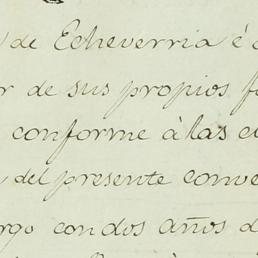 de Echeverria é
r de sus propios f
conforme à las c
del presente conve
rgo con dos años d